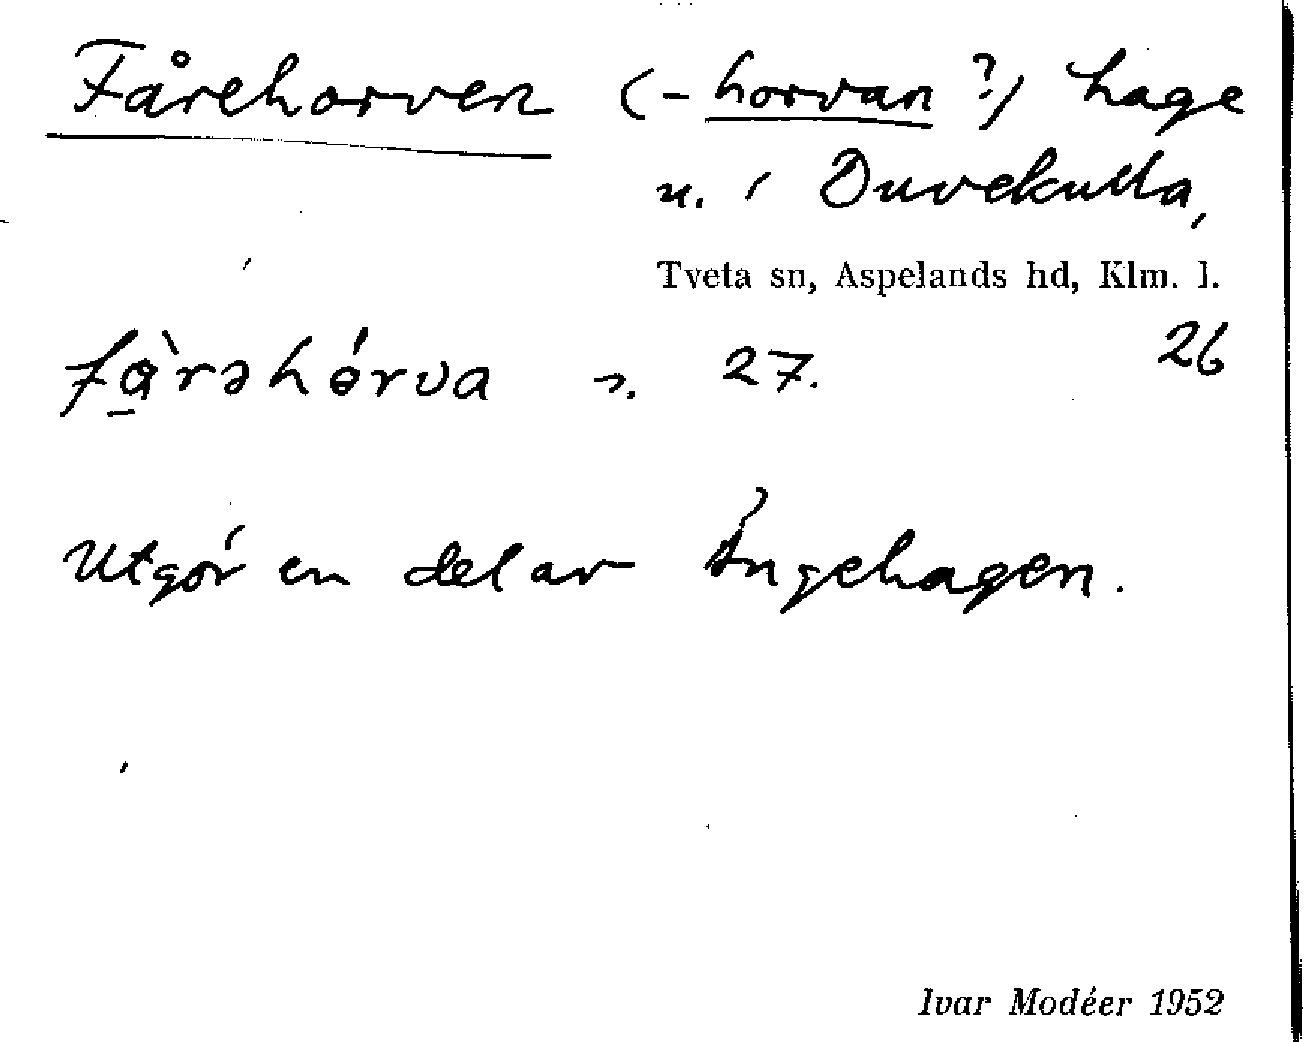 Fårehorven (-horvan?) hage
n. i Duvekulla,
Tveta sn, Aspelands hd, Klm. l.
26
fàrəhórva n. 27.
Utgör en del av Ängehagen.
Ivar Modéer 1952